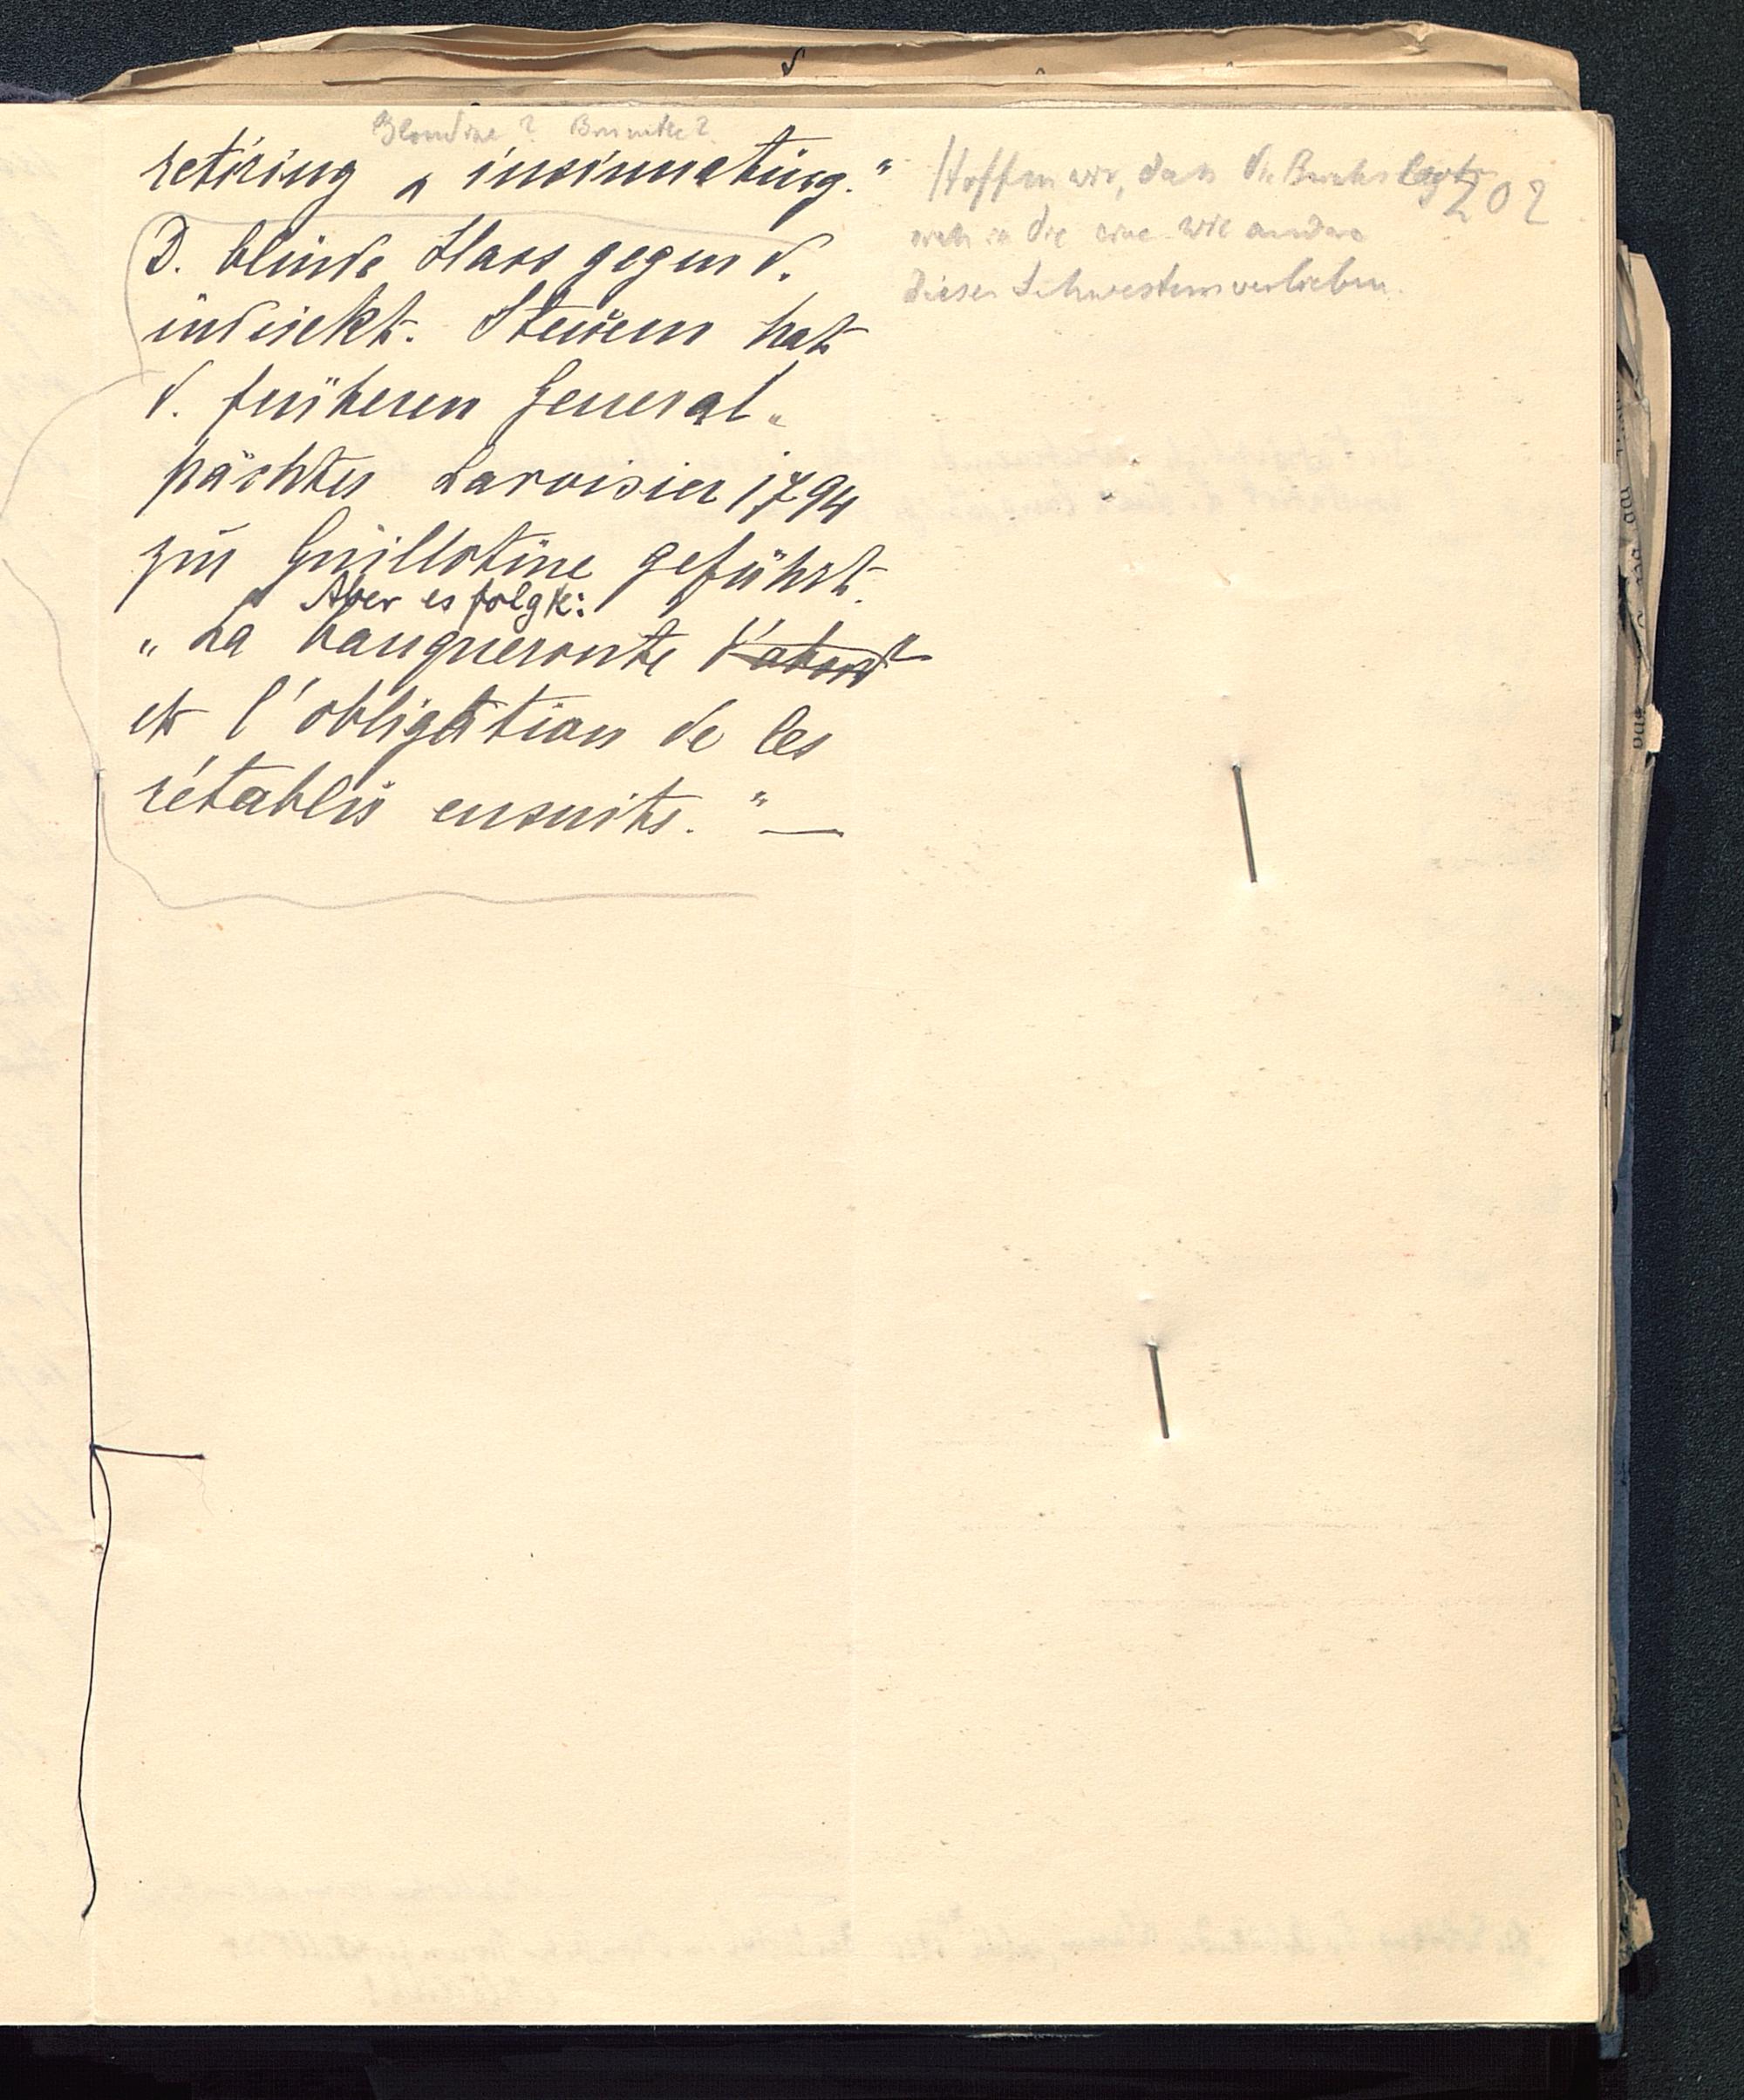 Blondine? Brünette?
retiring, insinnating."
D. blinde Hass gegen d.
indirekt. Steuern hat
d. früheren General-
pächter Lavoisier 1794
zur Guillotine geführt.
Aber es folgte:
„La banqueroute d'abord"
et l'obligation de les
rétablir ensuite." —
Hoffen wir, dass d.
202
sich in die eine wie andere
dieser Schwestern verlieben.